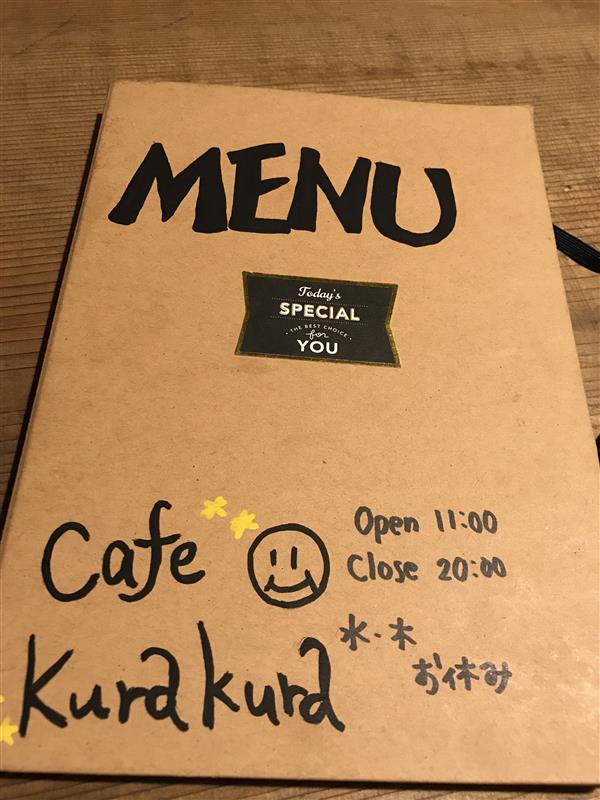 MENU
Today's
SPECIAL
• THE BEST CHOICE •
for
YOU
Cafe
Kurakura
Open 11:00
Close 20:00
水・木
お休み